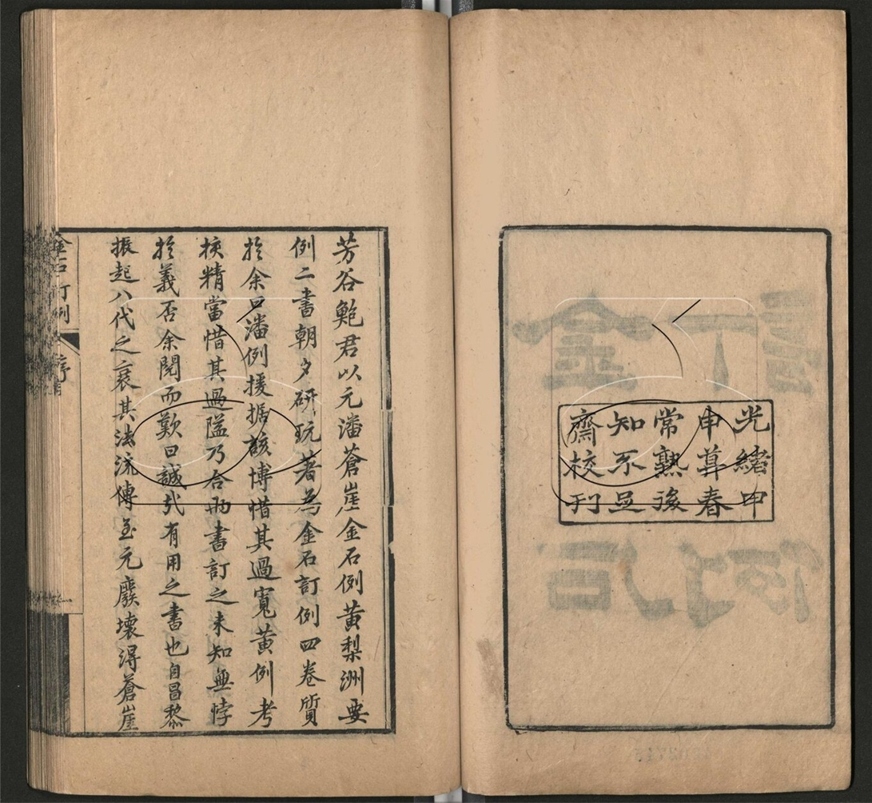 光緒甲
申葊春
常熟後
知不足
齋校刊
芳谷鮑君以元潘蒼崖金石例黃梨洲要
例二書朝夕研玩著為金石訂例四卷質
於余曰潘例援据該博惜其過寬黃例考
挍精當惜其過隘乃合兩書訂之未知無悖
於義否余閱而歎曰誠哉有用之書也自昌黎
振起八代之衰其法流傳至元廢壞得蒼崖
金石訂例
序
一